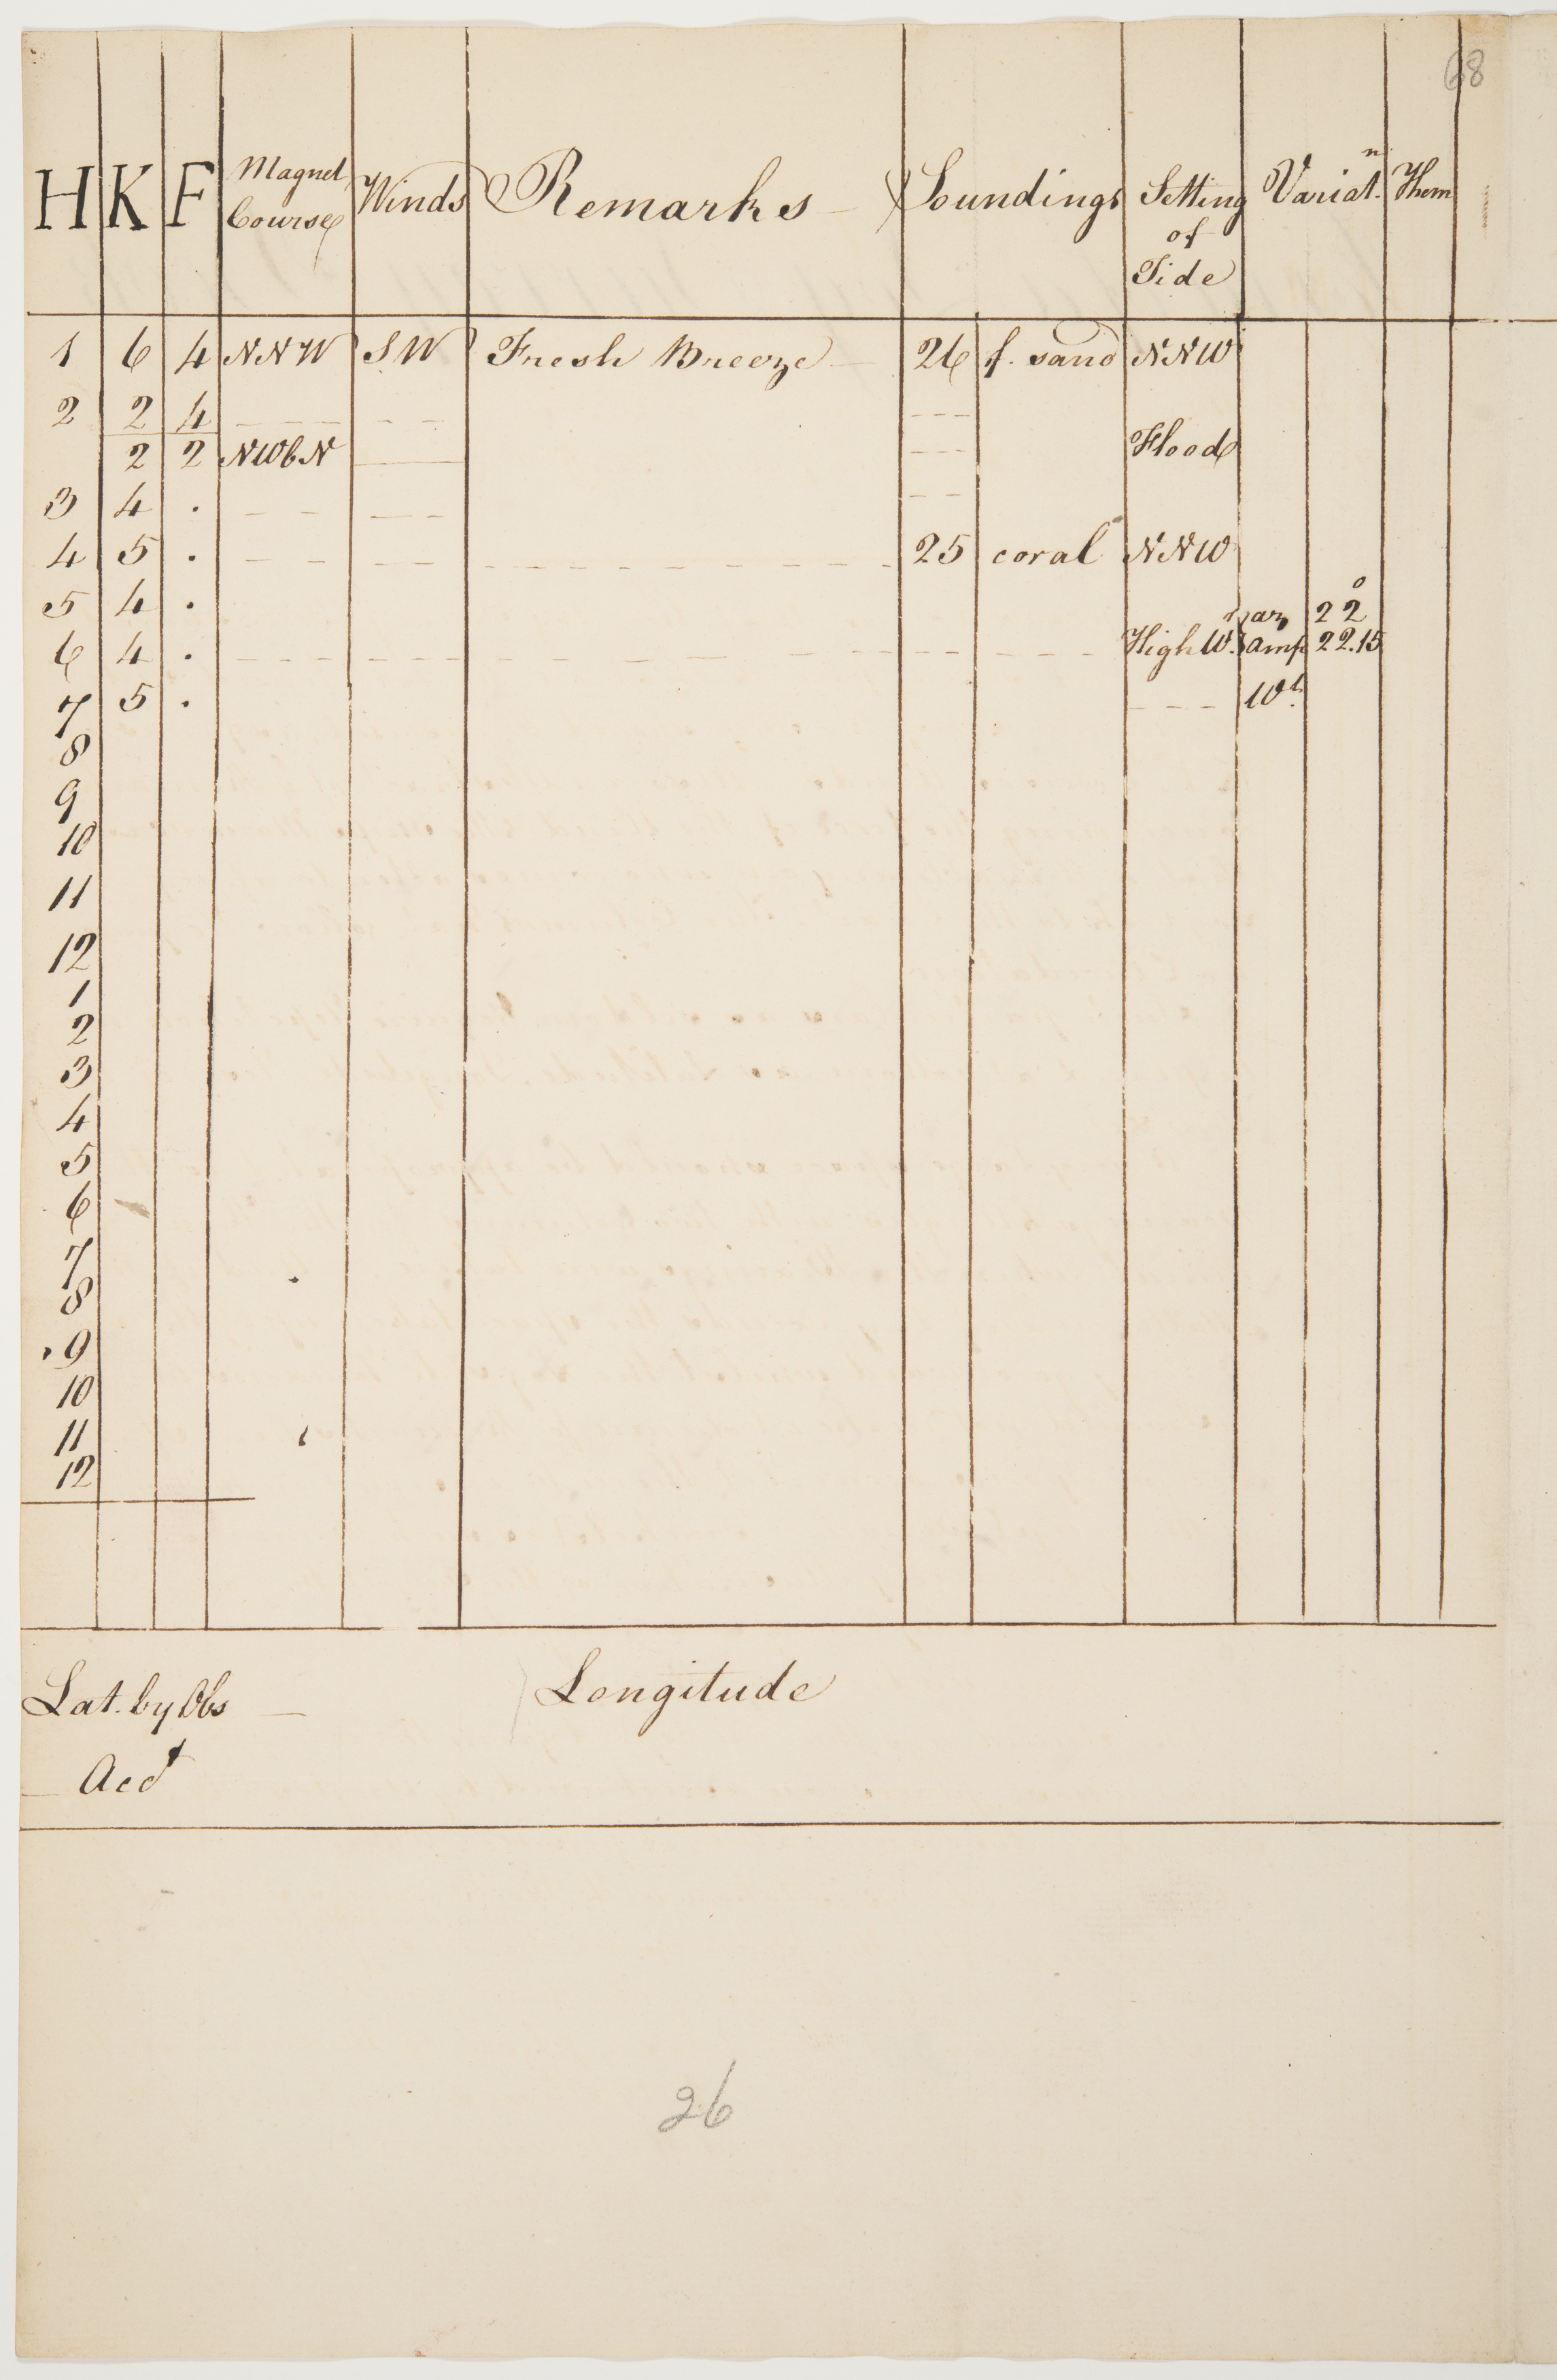 68
H K F Magnet Course Winds Remarks Soundings Setting of Tide Variat.n Thom
1 6 4 NNW SW Fresh Breeze — 26 f. sand NNW
2 2 4 — — — — — - - -
2 2 NWbN —— - - - Flood
3 4 . — — — — - - -
4 5 . — — — — - - - - - - - - - 25 coral NNW
5 4 . az 22°
6 4 . - - - - - - - - - - - - High W. amp 22.15
7 5 . - - - Wt.
8
9
10
11
12
1
2
3
4
5
6
7
8
9
10
11
12
Lat. by Obs — Longitude
— Acct
26